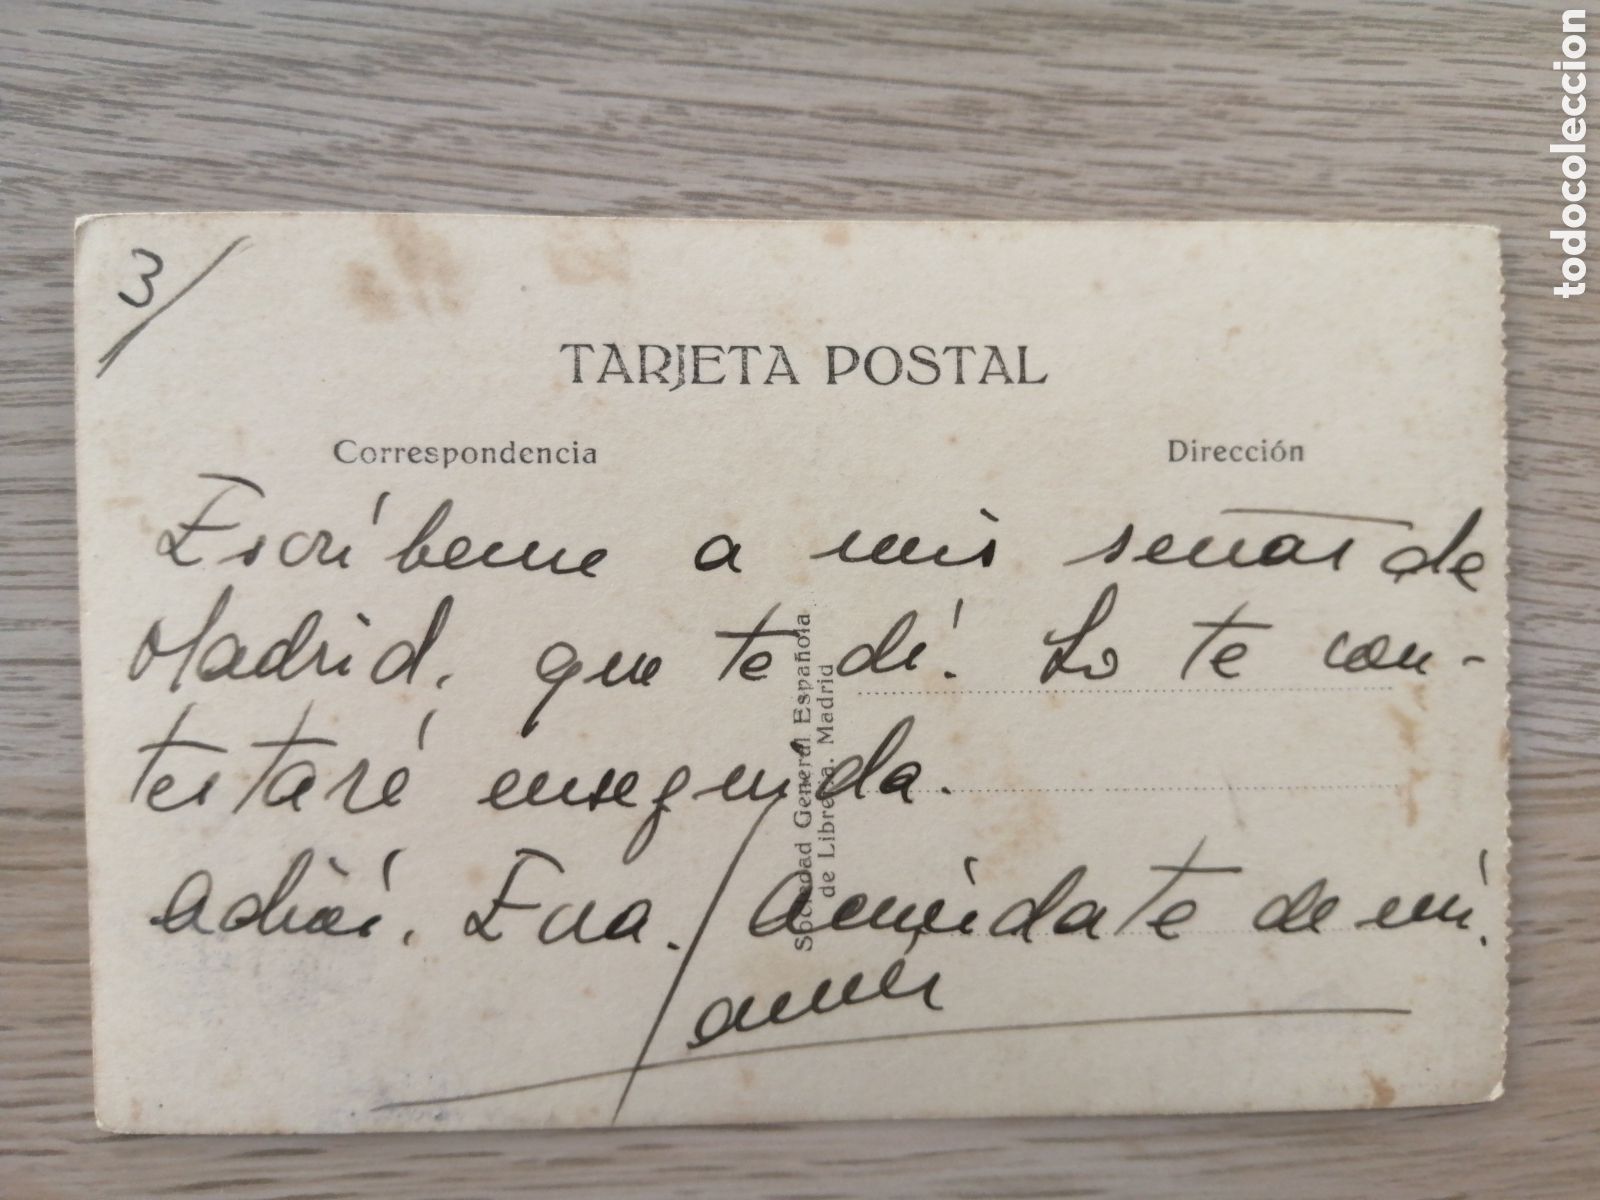 3/
TARJETA POSTAL
Correspondencia
Dirección
Escríbeme a mis señas de
Madrid, que te dí. Lo te con-
testaré enseguida.
Adiós. Eva. / Acuérdate de mí.
Sociedad General Española
de Librería. Madrid
todocoleccion